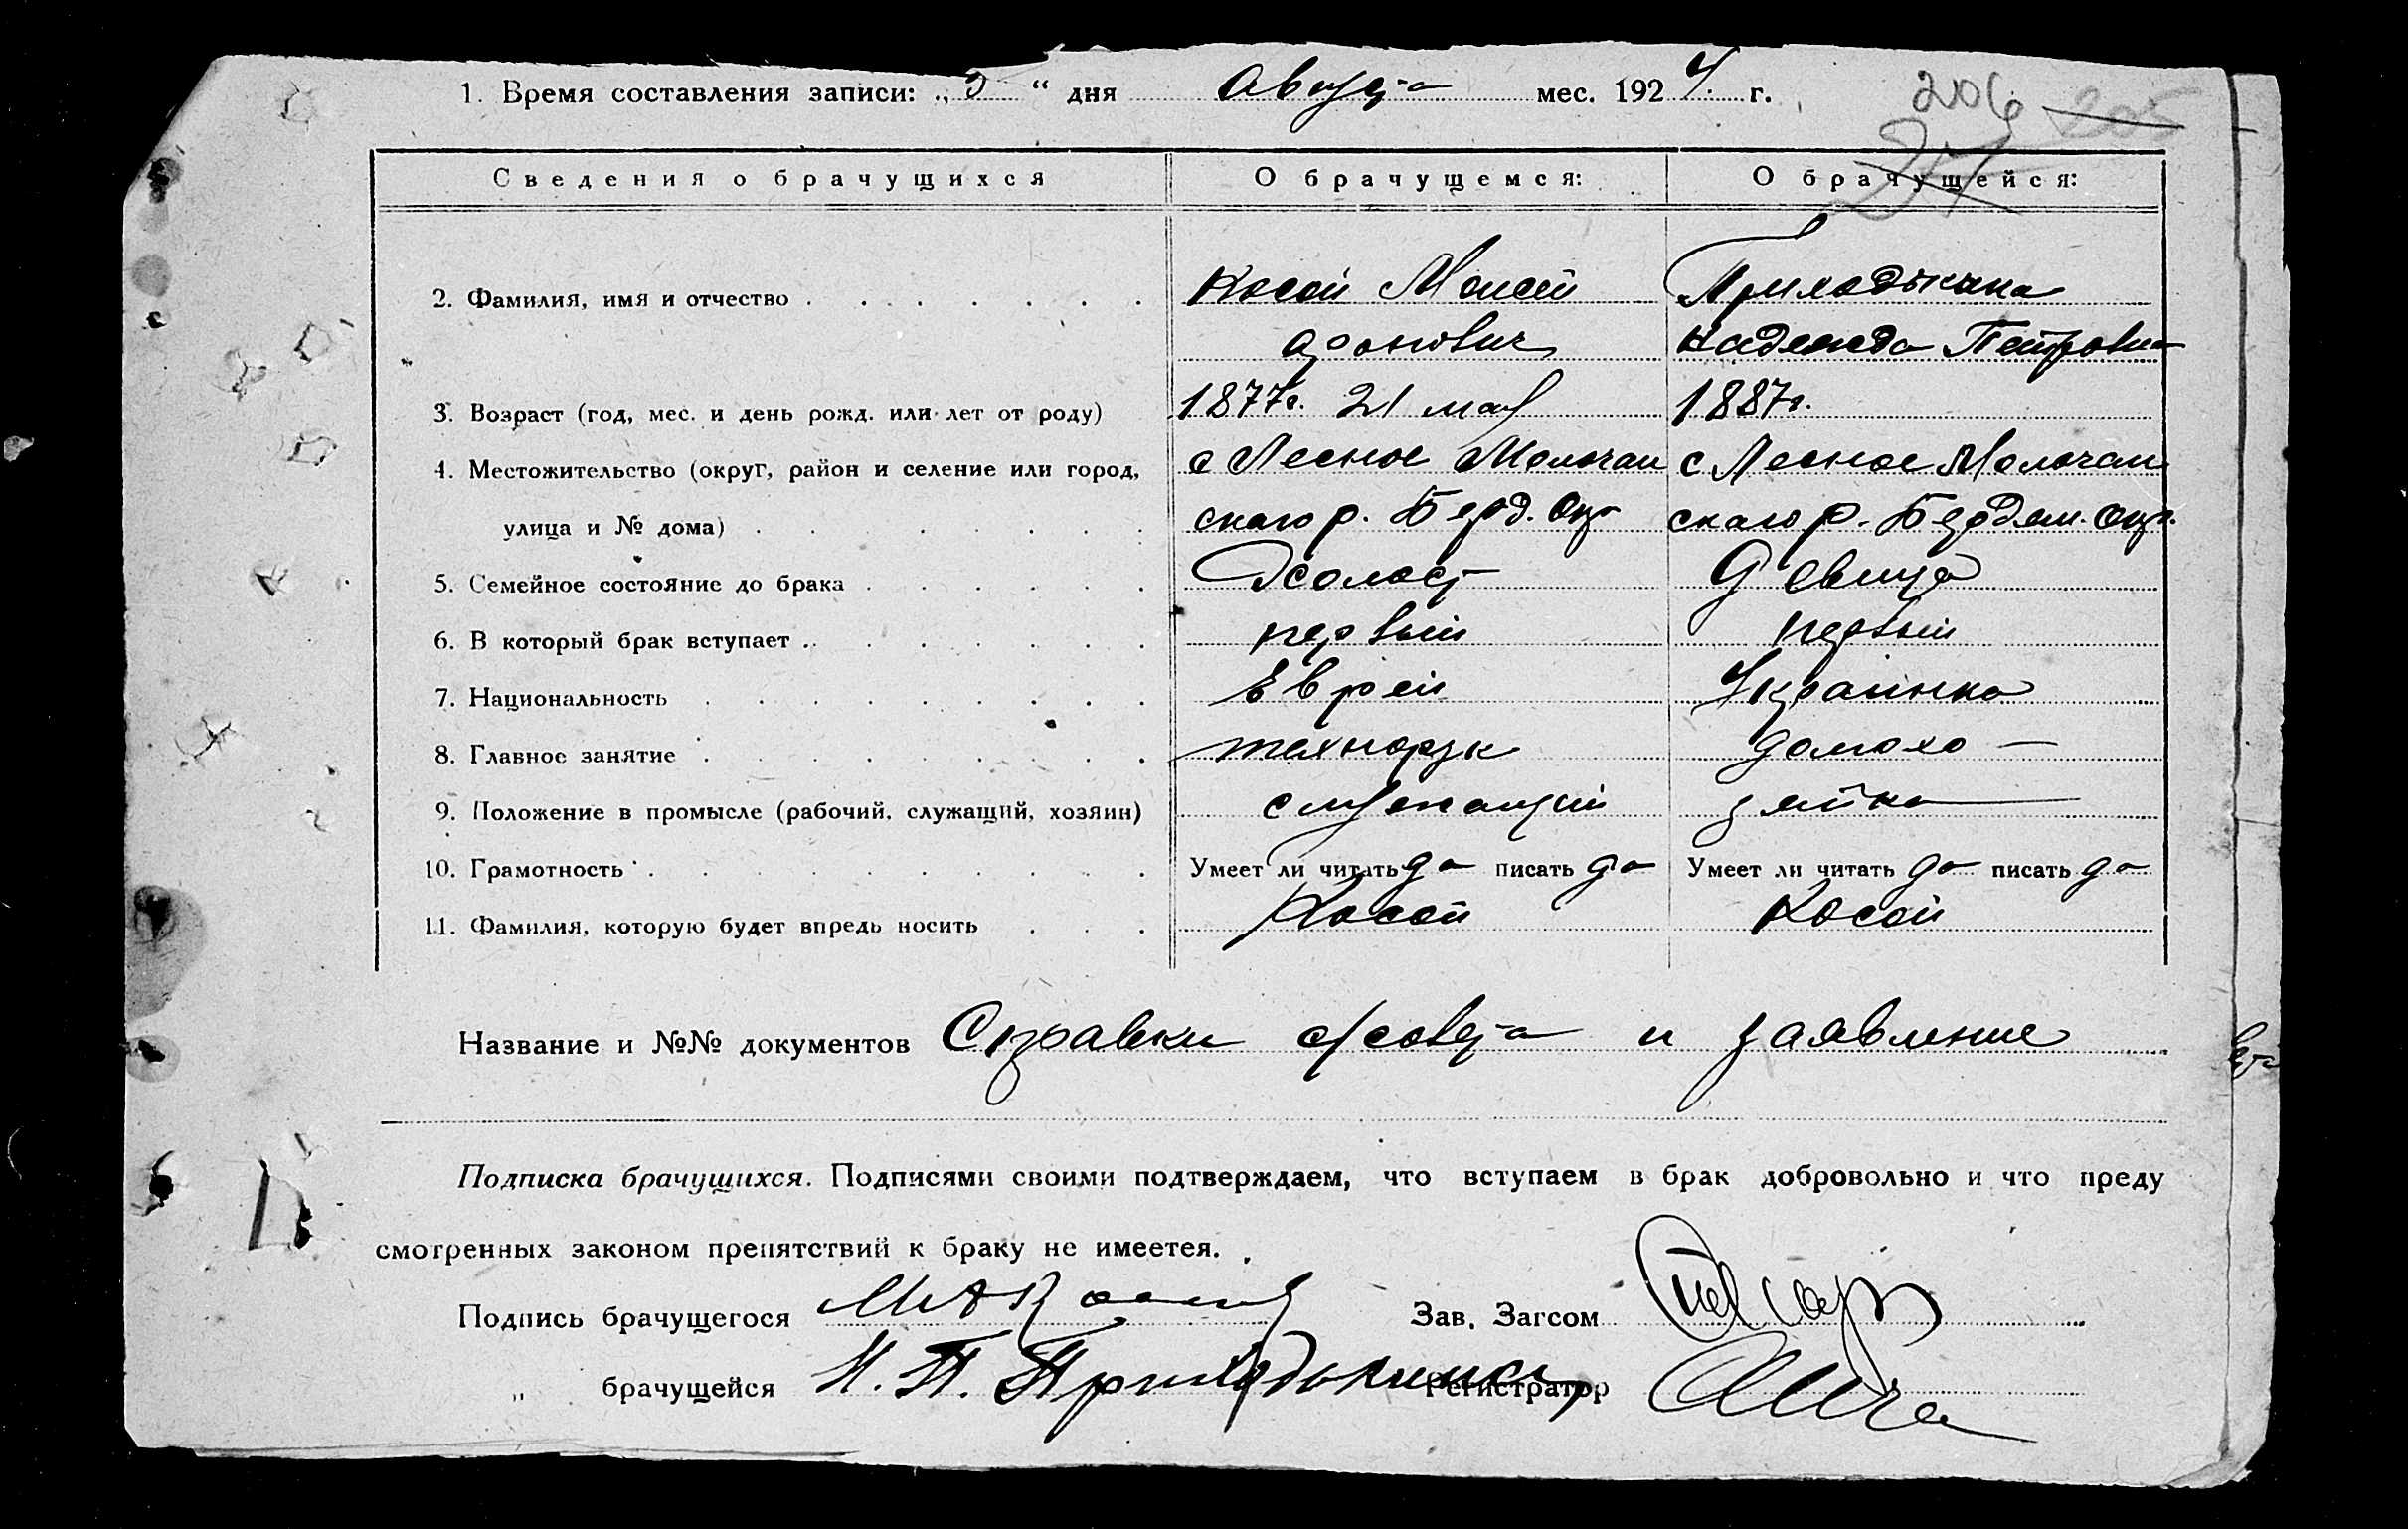 1. Время составления записи: „ “ дня Августа мес. 192 г.
206 205
27
Сведения о брачущихся О брачущемся: О брачущейся:
2. Фамилия, имя и отчество Косой Моисей Приходькина
Аронович Надежда Петровна
3. Возраст (год, мес. и день рожд. или лет от роду) 1877г. 21 мая 1887г.
4. Местожительство (округ, район и селение или город, с Лесное Молочан с Лесное Молочан
улица и № дома) скаго р. Берд. Окр скаго р. Бердян. Окр.
5. Семейное состояние до брака Холост Девица
6. В который брак вступает первый первый
7. Национальность Еврей Украинка
8. Главное занятие технорук домохо —
9. Положение в промысле (рабочий, служащий, хозяин) служащий зяйка
10. Грамотность Умеет ли читать да писать да Умеет ли читать да писать да
11. Фамилия, которую будет впредь носить Косой Косой
Название и №№ документов Справки с/совета и заявление
Подписка брачущихся. Подписями своими подтверждаем, что вступаем в брак добровольно и что преду
смотренных законом препятствий к браку не имеетея.
Подпись брачущегося МАКосой Зав. Загсом
„ брачущейся Н. П. Приходькина Регистратор